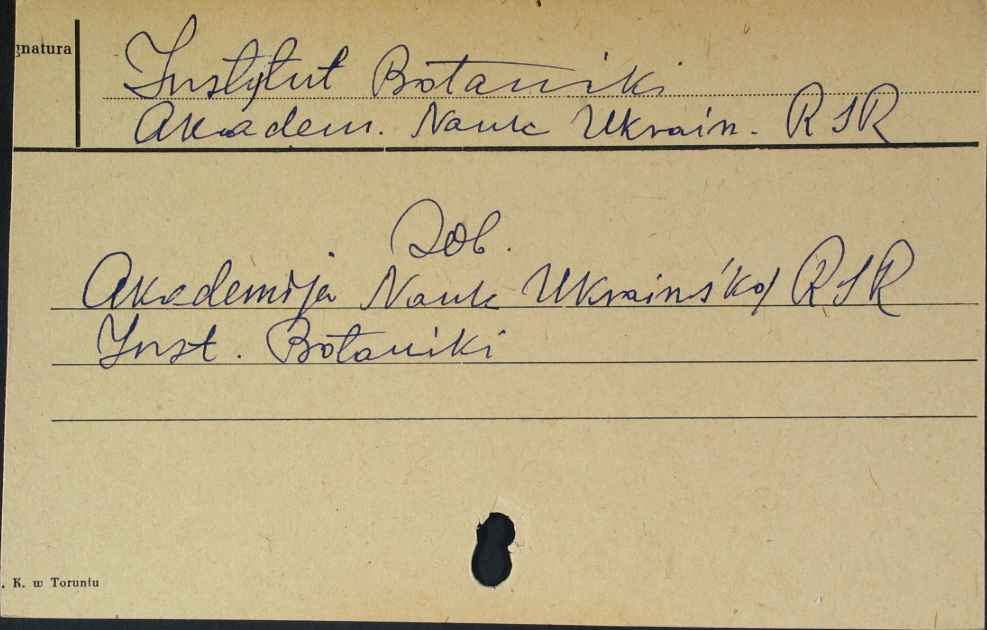 gnatura
Instytut Botaniki
Akadem. Nauk Ukrain. RSR
Zob.
Akademija Nauk Ukrainśkoj RSR
Inst. Botaniki
. K. w Toruniu